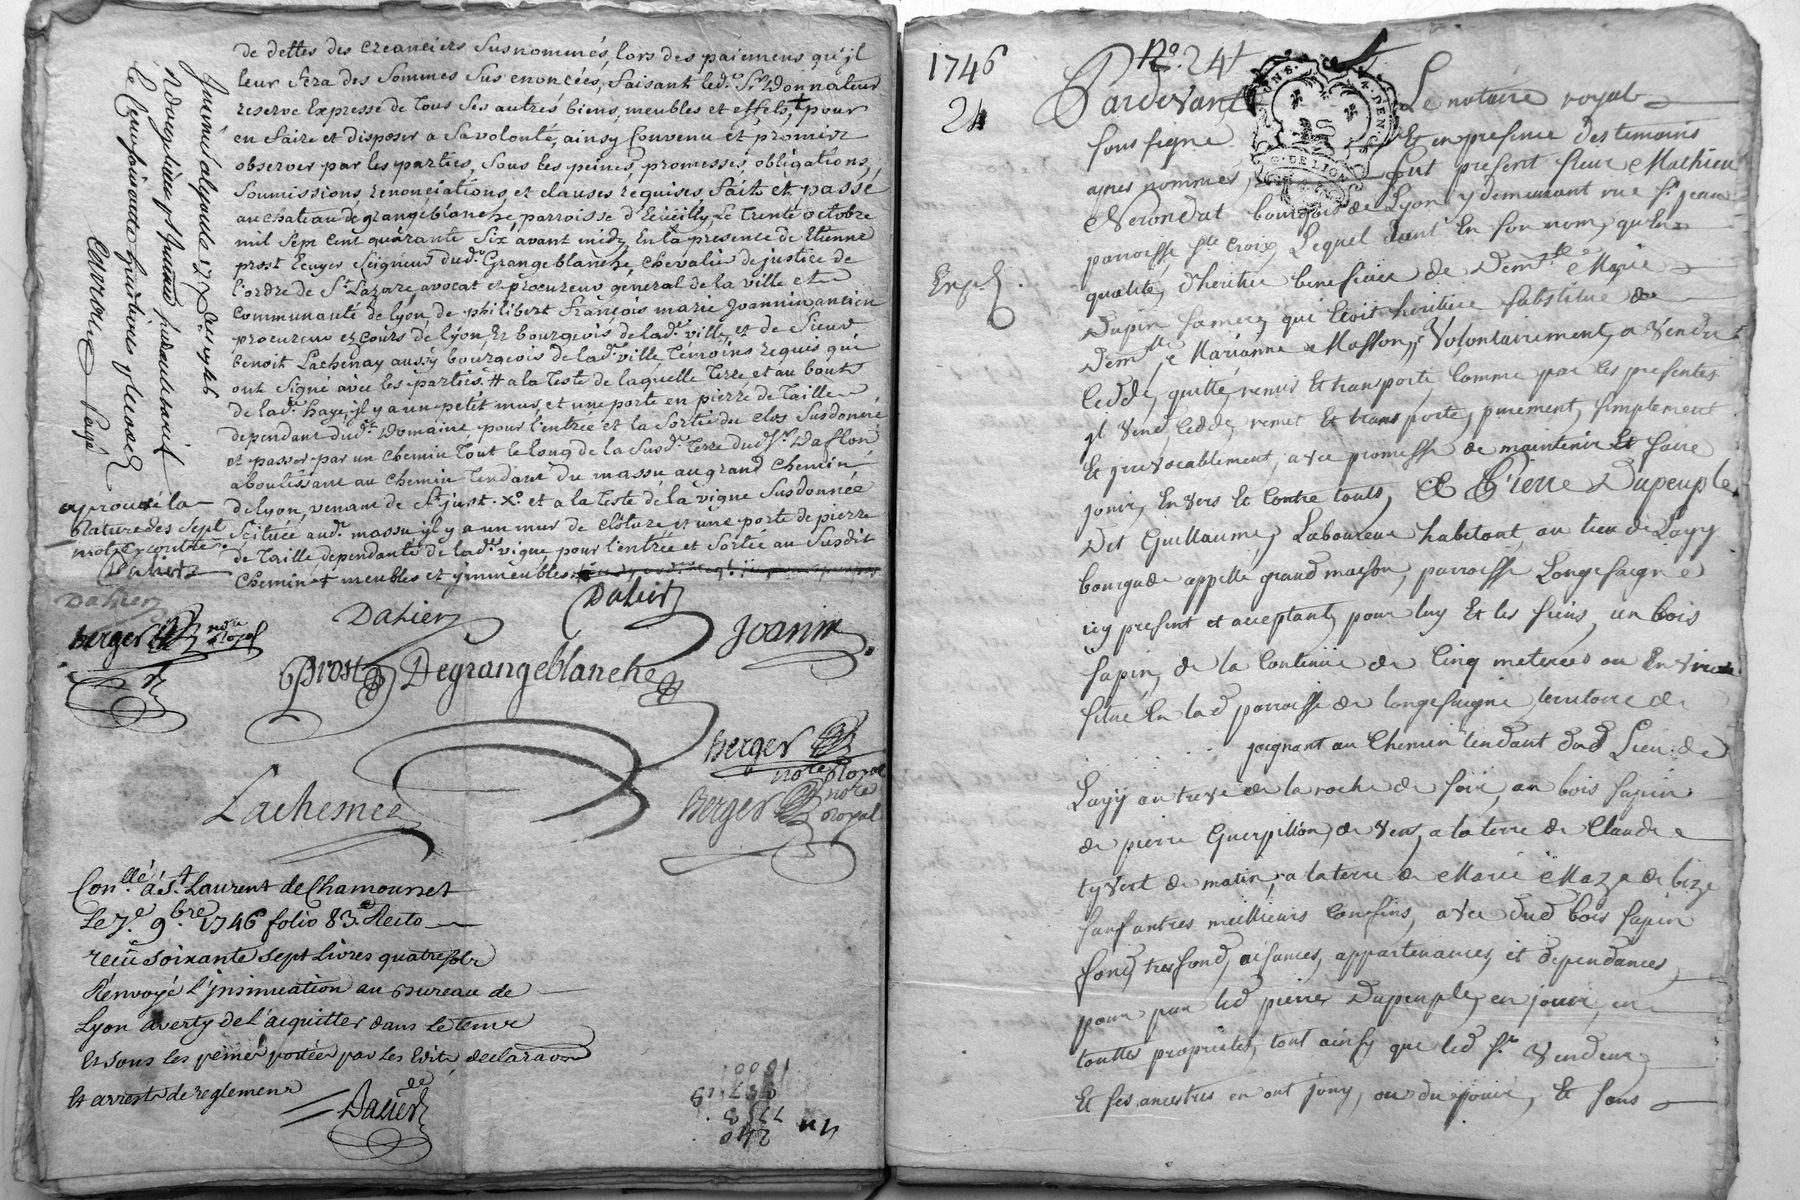 de dettes des creanciers susnommés, lors des paiemens qu'il
leur fera des sommes sus enoncées, faisant led. Sr. Donnateur
reserve Expresse de tous ses autres biens, meubles et effets, + pour
en faire et disposer a sa volonté, ainsy Convenu et promis
observer par les parties, sous les peines, promesses, obligations,
soumissions, renonciations, et clauses requises, fait et passé
au chateau de grangeblanche parroisse d'Ecueilly, Le Trente octobre
mil sept cent quarante six avant midy, En la presence de Etienne
prost Ecuyer Seigneur dud. Grangeblanche, chevalier de justice de
l'ordre de St. Lazare avocat et procureur général de la ville et
Communauté de Lyon, de philibert françois marie Joannin ancien
procureur ez cours de Lyon, Et bourgeois de lad. ville, et de Sieur
benoit Lachenay aussy bourgeois de lad. ville, Temoins requis qui
ont signé avec les parties. # a la Teste de laquelle Terre et au bout
de lad. haye, il y a un petit mur, et une porte en pierre de Taille
dependant dud. Domaine, pour l'entrée et la sortie du clos susdonné
et passer par un chemin Tout le long de la susd. Terre dud. Sr. Daflon
aboutissant au chemin Tendant du massu au grand chemin
de Lyon, venant de St. just. Xo. et a la Teste de la vigne susdonnée
scituée aud. massu, il y a un mur de clôture et une porte de pierre
de Taille, dependante de lad. vigne, pour l'entrée et sortie au susdit
chemin + meubles et ymmeubles
aprouvé la
rature des sept
mots cy contre
Dahier
Berger nore Royal
Dahier
Dahier
Joannin
Prost Degrangeblanche
Berger
nore Royal
Lachenez
Berger nore
Royal
Conllé. à St. Laurent de Chamousset
Le 7e. 9bre. 1746 folio 83 Recto
receu soixante sept Livres quatre sols
Renvoyé L'ynsinuation au Bureau de
Lyon averty de l'acquitter dans le temps
Et sous les peines portées par les Edits, declaraons
Et arrests de reglement
1746
No. 24
24
Pardevant Le notaire royal
soussigné Et en presence des temoins
apres nommés, fut present sieur Mathieu
Nerondat bourgois de Lyon, y demeurant rue St. jean
parroisse Ste. Croix, Lequel tant En son nom, qu'En
qualité, d'heritier beneficiaire de Demlle. Marie
Dupin sa mere, qui Etoit heritiere substituée de
Demlle. Marianne Masson, Volontairement, a vendu
Ceddé, quitté, remis Et transporté, Comme par les presentes
jl vend, Cedde, remet Et transporte, purement, simplement
Et jrrevocablement, avec promesse de maintenir Et faire
jouir, Envers Et Contre touts, A Pierre Dupeuple
Dit Guillaume, Laboureur habitant, au lieu de Lagy
bourg de appellé grand maison, parroisse Longesaigne
icy present et acceptant, pour luy Et les siens, un bois
sapin, de la Continüe de Cinq meterées ou Environ
situé En lad. parroisse de longesaigne, territoire de
joignant au Chemin tendant dud. Lieu de
Lagy au treve de la roche de soir, au bois sapin
de pierre Guerpillon, de vent, a la terre de Claude
tyvert de matin, a la terre de Marie Maza de bize
sauf autres meillieurs Confins, avec dud. bois sapin
fond, tresfond, aisances, appartenances, et dependances,
pour par led. pierre Dupeuple, en jouir, en
touttes proprietés, tout ainsy que led. Sr. Vendeur
Et ses ancestres en ont jouy, ou du jouir, Et sous